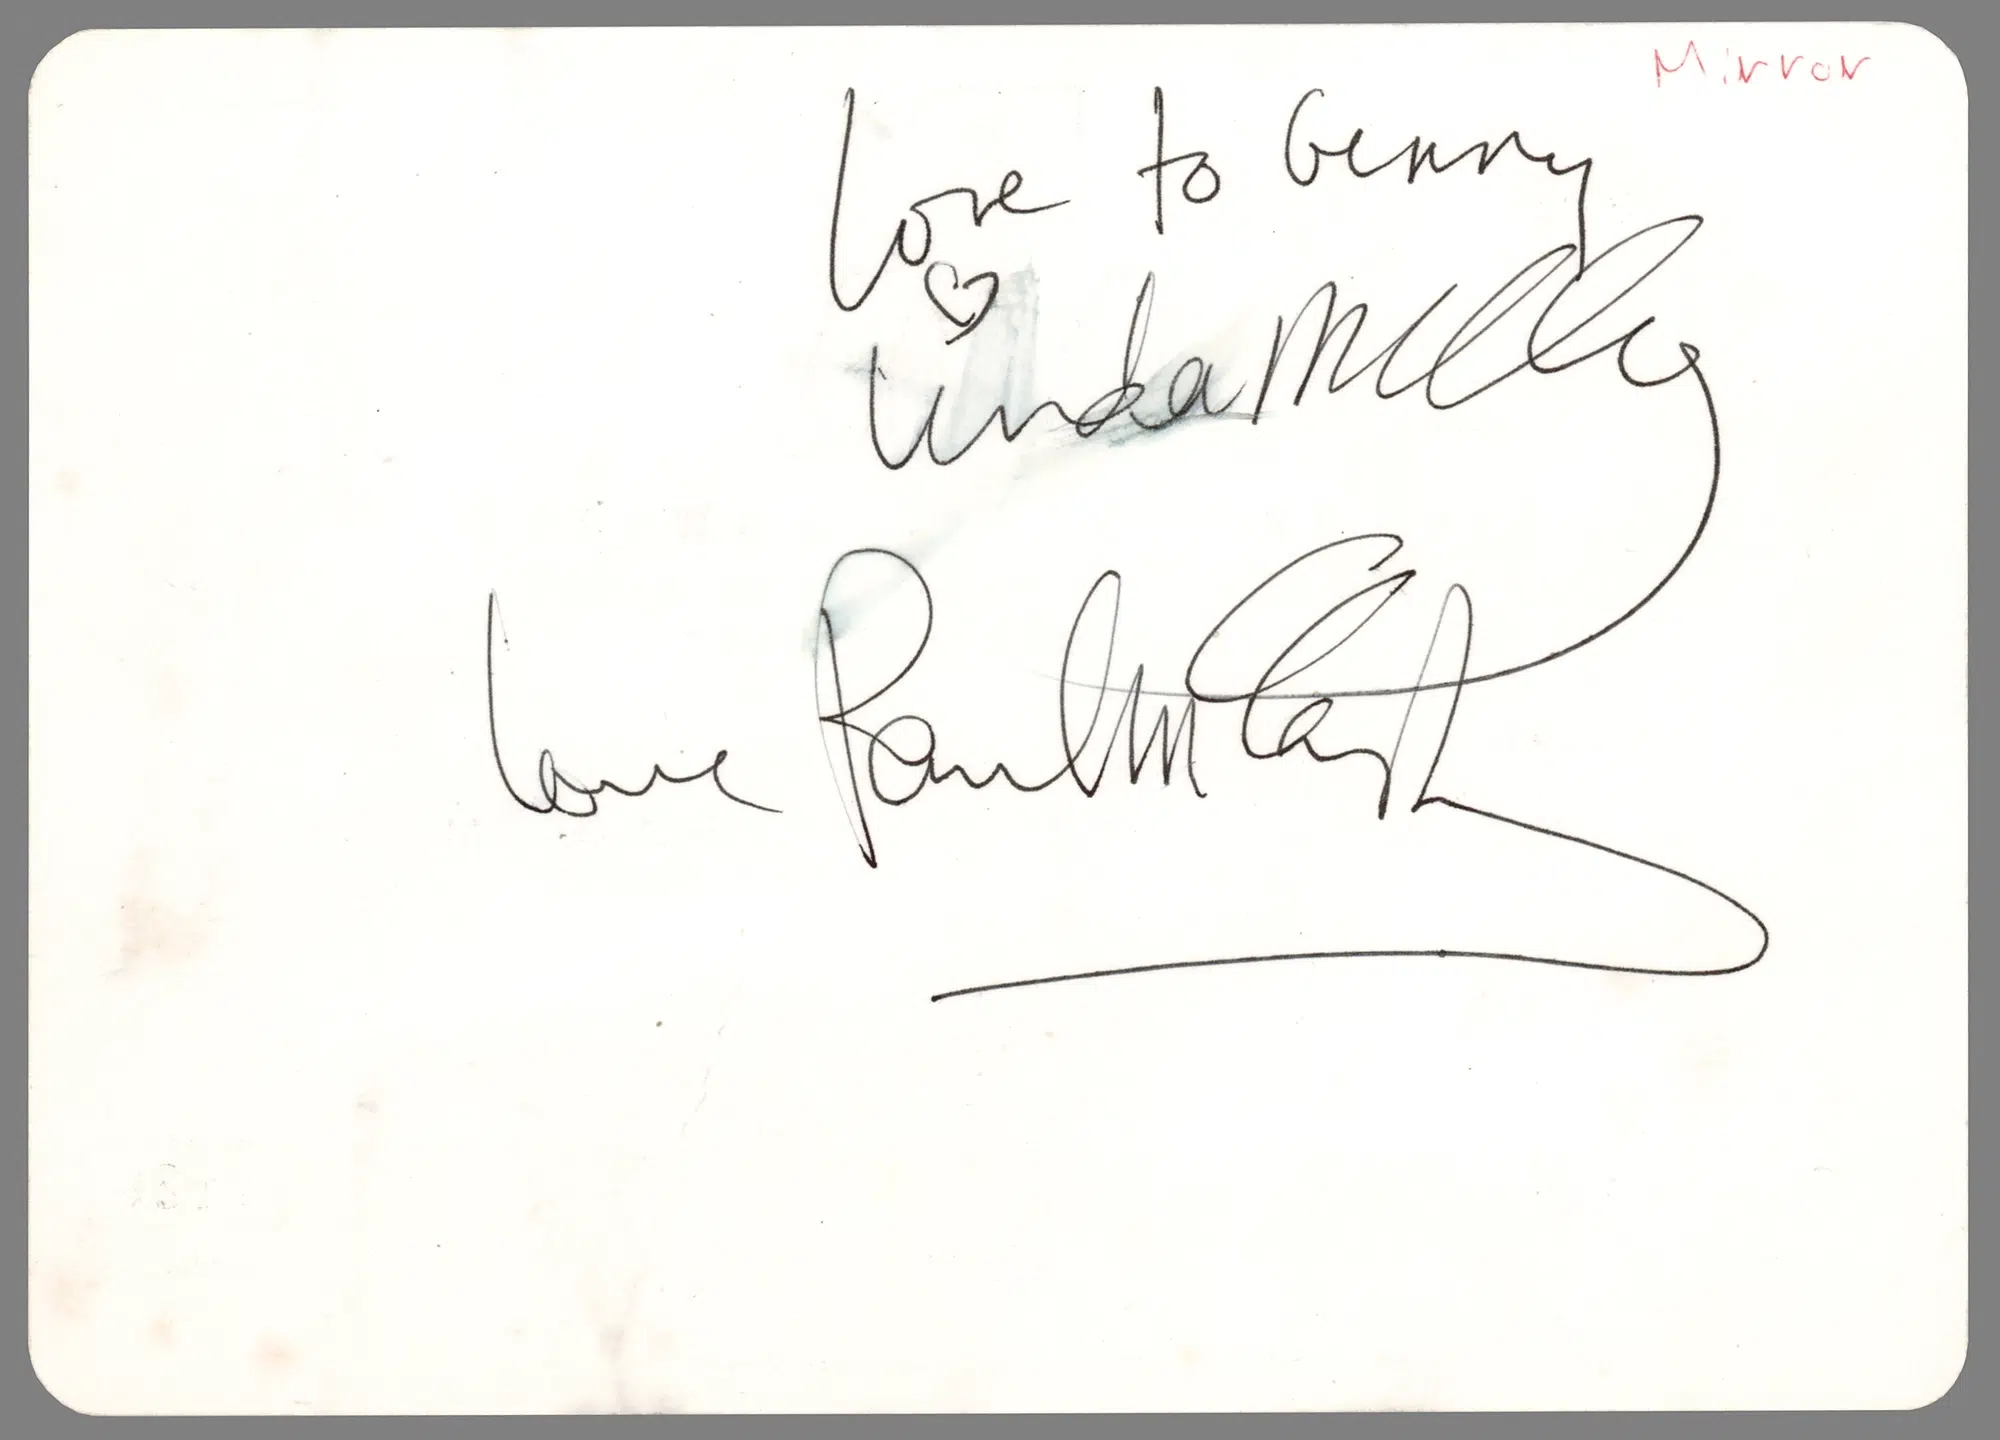 Mirror
Love to Genny
Linda McCartney
Love Paul McCartney